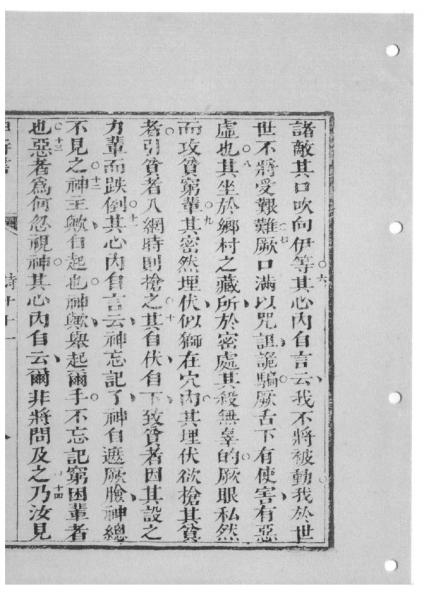 諸敵其口吹向伊等其心內自言云我不將被動我於世
世不將受艱難厥口滿以咒詛詭騙厥舌下有使害有惡
虛也其坐於鄉村之藏所於密處其殺無辜的厥眼私然
而攻貧窮輩其密然埋伏似獅在穴內其埋伏欲搶其貧
者引貧者入網時則搶之其自伏自下致貧者因其設之
力輩而跌倒其心內自言云神忘記了神自遮厥臉神總
不見之神王歟自起也神歟舉起爾手不忘記窮困輩者
也惡者為何忽視神其心內自云爾非將問及之乃汝見
六
七
八
九
十
十一
十二
十三
十四